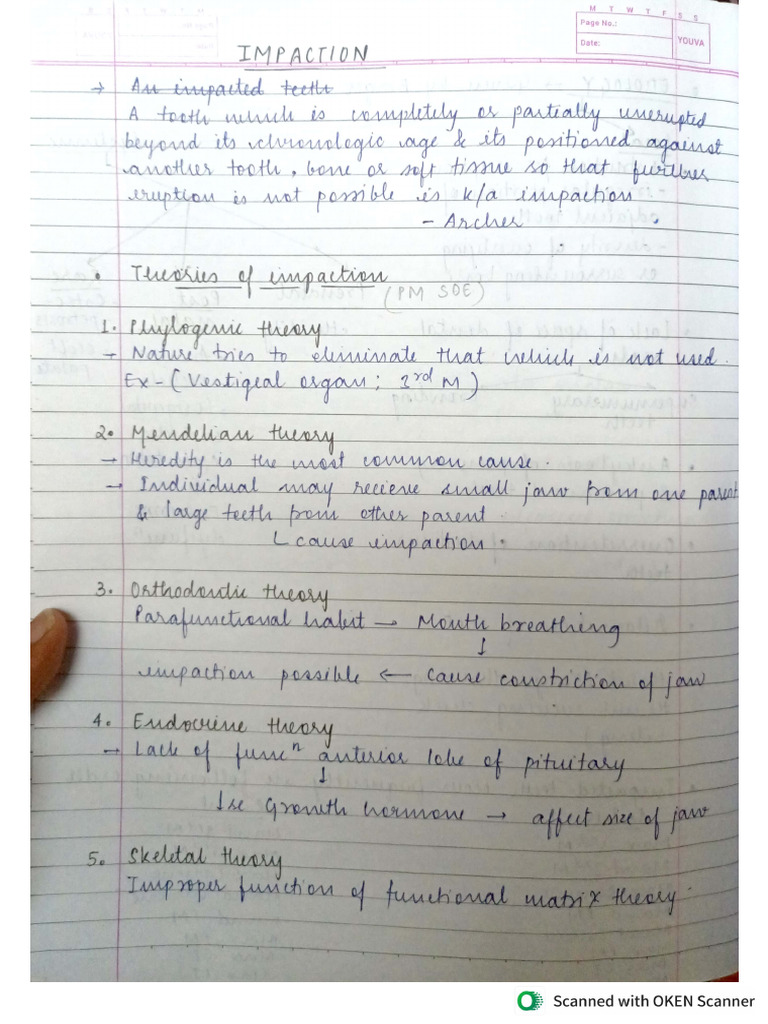 M T W T F S S
Page No.:
Date:
YOUVA
IMPACTION
→ An impacted teeth
A tooth which is completely or partially unerupted
beyond its chronologic age & its positioned against
another tooth, bone or soft tissue so that further
eruption is not possible is k/a impaction
- Archer
• Theories of impaction
(PM SOE)
1. Phylogenic theory
→ Nature tries to eliminate that which is not used.
Ex - (Vestigeal organ; 3rd M)
2. Mendelian theory
→ Heredity is the most common cause.
→ Individual may recieve small jaw from one parent
& large teeth from other parent.
↳ cause impaction.
3. Orthodondic theory
Parafunctional habit → Mouth breathing
↓
impaction possible ← cause constriction of jaw
4. Endocrine theory
→ Lack of funcⁿ anterior lobe of pituitary
↓
↓se Growth hormone → affect size of jaw
5. Skeletal theory
Improper function of functional matrix theory.
Scanned with OKEN Scanner